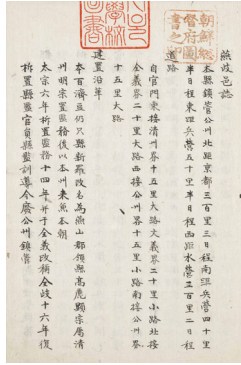 朝鮮總
督府圖
書之印
燕岐邑誌
本縣鎭管公州北距京都三百里三日程南距兵營四十里
半日程東距兵營五十里半日程西距水營里二日程
道路
自官門東接淸州界十五里大路文義界二十里小路北接
全義界二十里大路西接公州界十五里小路南接公州界
十五里大路
建置沿革
本百濟豆仍只縣新羅改名爲燕山郡領縣高麗顯宗屬淸
州明宗置監務後以木州來兼本朝
太宗六年析置監務十四年幷于全義改稱全岐十六年復
析置縣監官員縣監訓導今廢公州鎭管